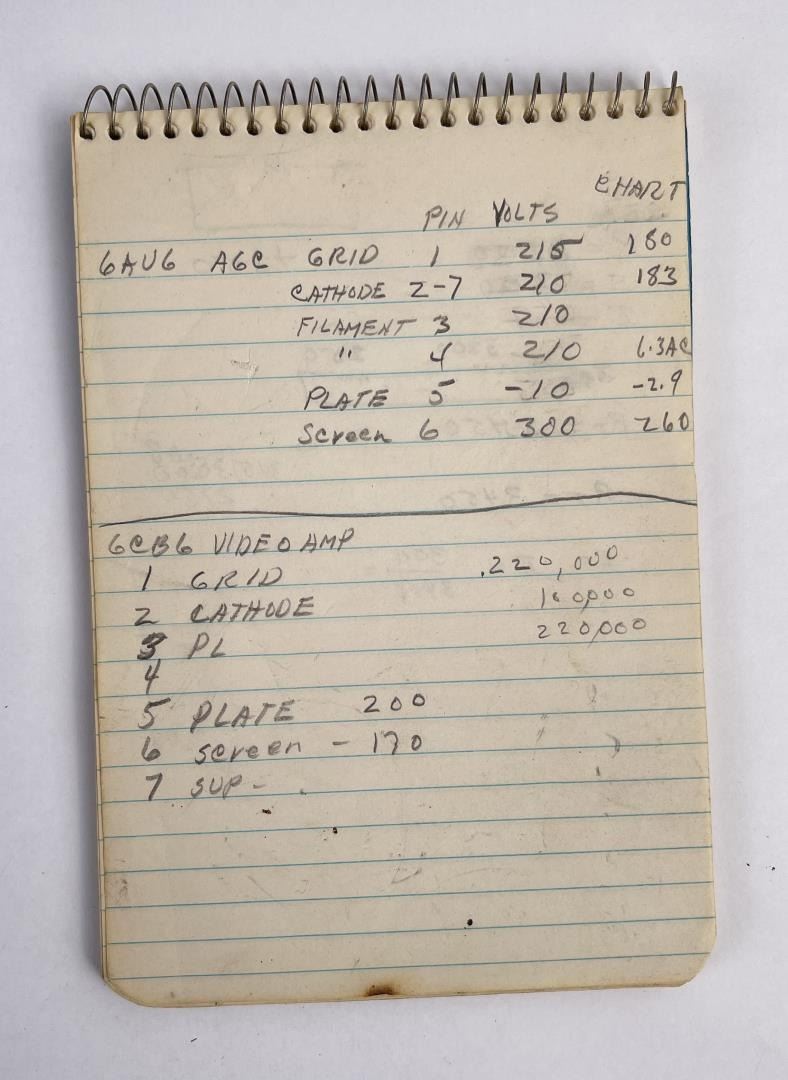 CHART
PIN VOLTS
6AU6 AGC GRID 1 215 180
CATHODE 2-7 210 183
FILAMENT 3 210
" 4 210 6.3AC
PLATE 5 -10 -2.9
Screen 6 300 260
6CB6 VIDEO AMP
1 GRID .220,000
2 CATHODE 100,000
3 PL 220,000
4
5 PLATE 200
6 screen - 170
7 SUP -